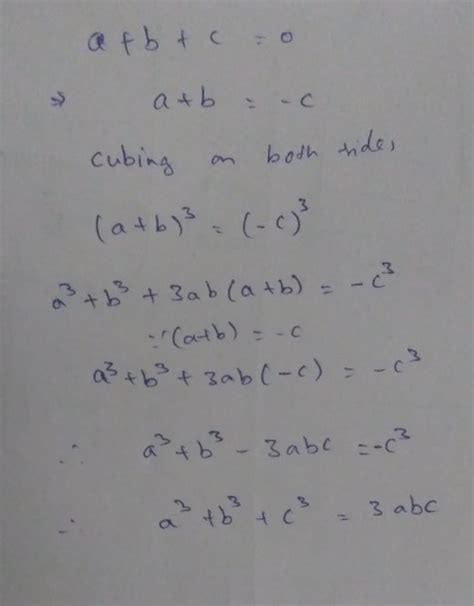 a + b + c = 0
⇒ a + b = -c
cubing on both sides,
(a+b)³ = (-c)³
a³ + b³ + 3ab(a+b) = -c³
∵ (a+b) = -c
a³ + b³ + 3ab(-c) = -c³
∴ a³ + b³ - 3abc = -c³
∴ a³ + b³ + c³ = 3abc